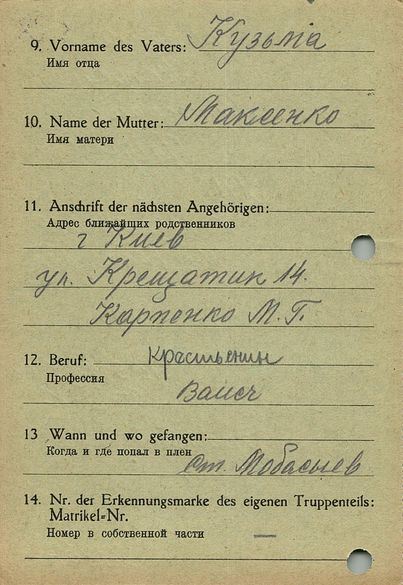 9. Vorname des Vaters: Кузьма
Имя отца
10. Name der Mutter: Макиенко
Имя матери
11. Anschrift der nächsten Angehörigen:
Адрес ближайших родственников
г Киев
ул. Крещатик 14.
Карпенко М. Г.
12. Beruf: крестьенин
Профессия
13 Wann und wo gefangen:
Когда и где попал в плен
ст.
14. Nr. der Erkennungsmarke des eigenen Truppenteils:
Matrikel-Nr.
Номер в собственной части —